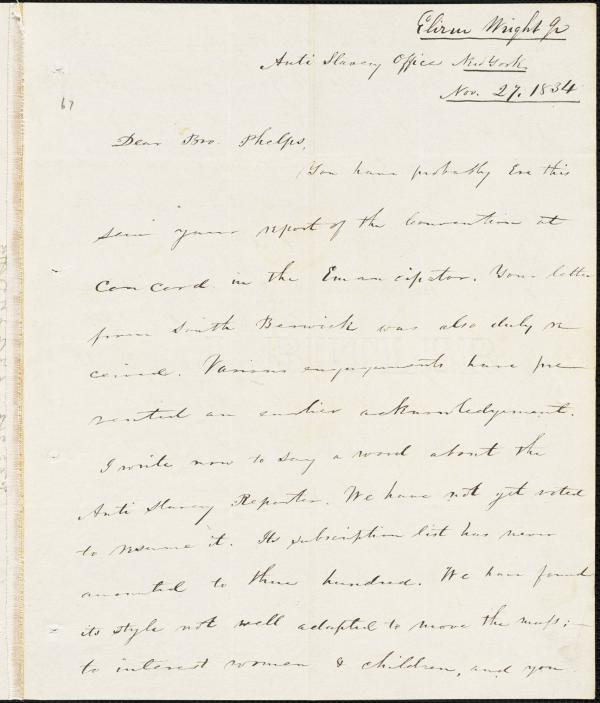 Elizur Wright Jr
Anti Slavery Office New York
Nov. 27, 1834
67
Dear Bro. Phelps,
You have probably ere this
seen your report of the Convention at
Concord in the Emancipator. Your letter
from South Berwick was also duly re
ceived. Various engagements have pre
vented an earlier acknowledgement.
I write now to say a word about the
Anti Slavery Reporter. We have not yet voted
to resume it. Its subscription list has never
amounted to three hundred. We have found
its style not well adapted to move the mass;—
to interest women & children, and you